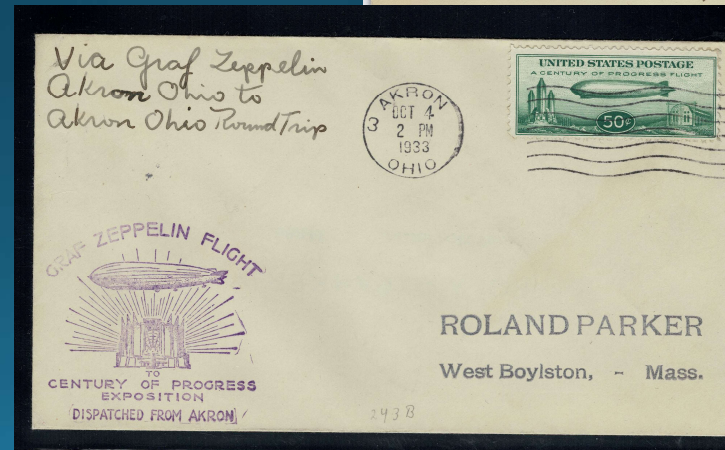 Via Graf Zeppelin
Akron Ohio to
Akron Ohio Round Trip
3 AKRON
OCT 4
2 PM
1933
OHIO
UNITED STATES POSTAGE
A CENTURY OF PROGRESS FLIGHT
50¢
GRAF ZEPPELIN FLIGHT
TO
CENTURY OF PROGRESS
EXPOSITION
DISPATCHED FROM AKRON
ROLAND PARKER
West Boylston, - Mass.
243 B